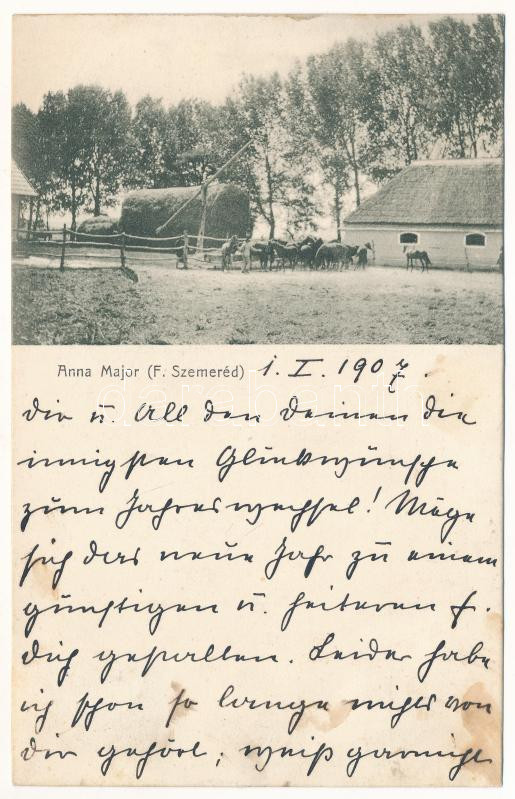 Anna Major (F. Szemeréd) 1. I. 1907.
Dir u. All den Deinen die
innigsten Glückwünsche
zum Jahreswechsel! Möge
sich das neue Jahr zu einem
günstigen u. heiteren f.
Dich gestalten. Leider habe
ich schon so lange nichts von
Dir gehört; weiß garnicht